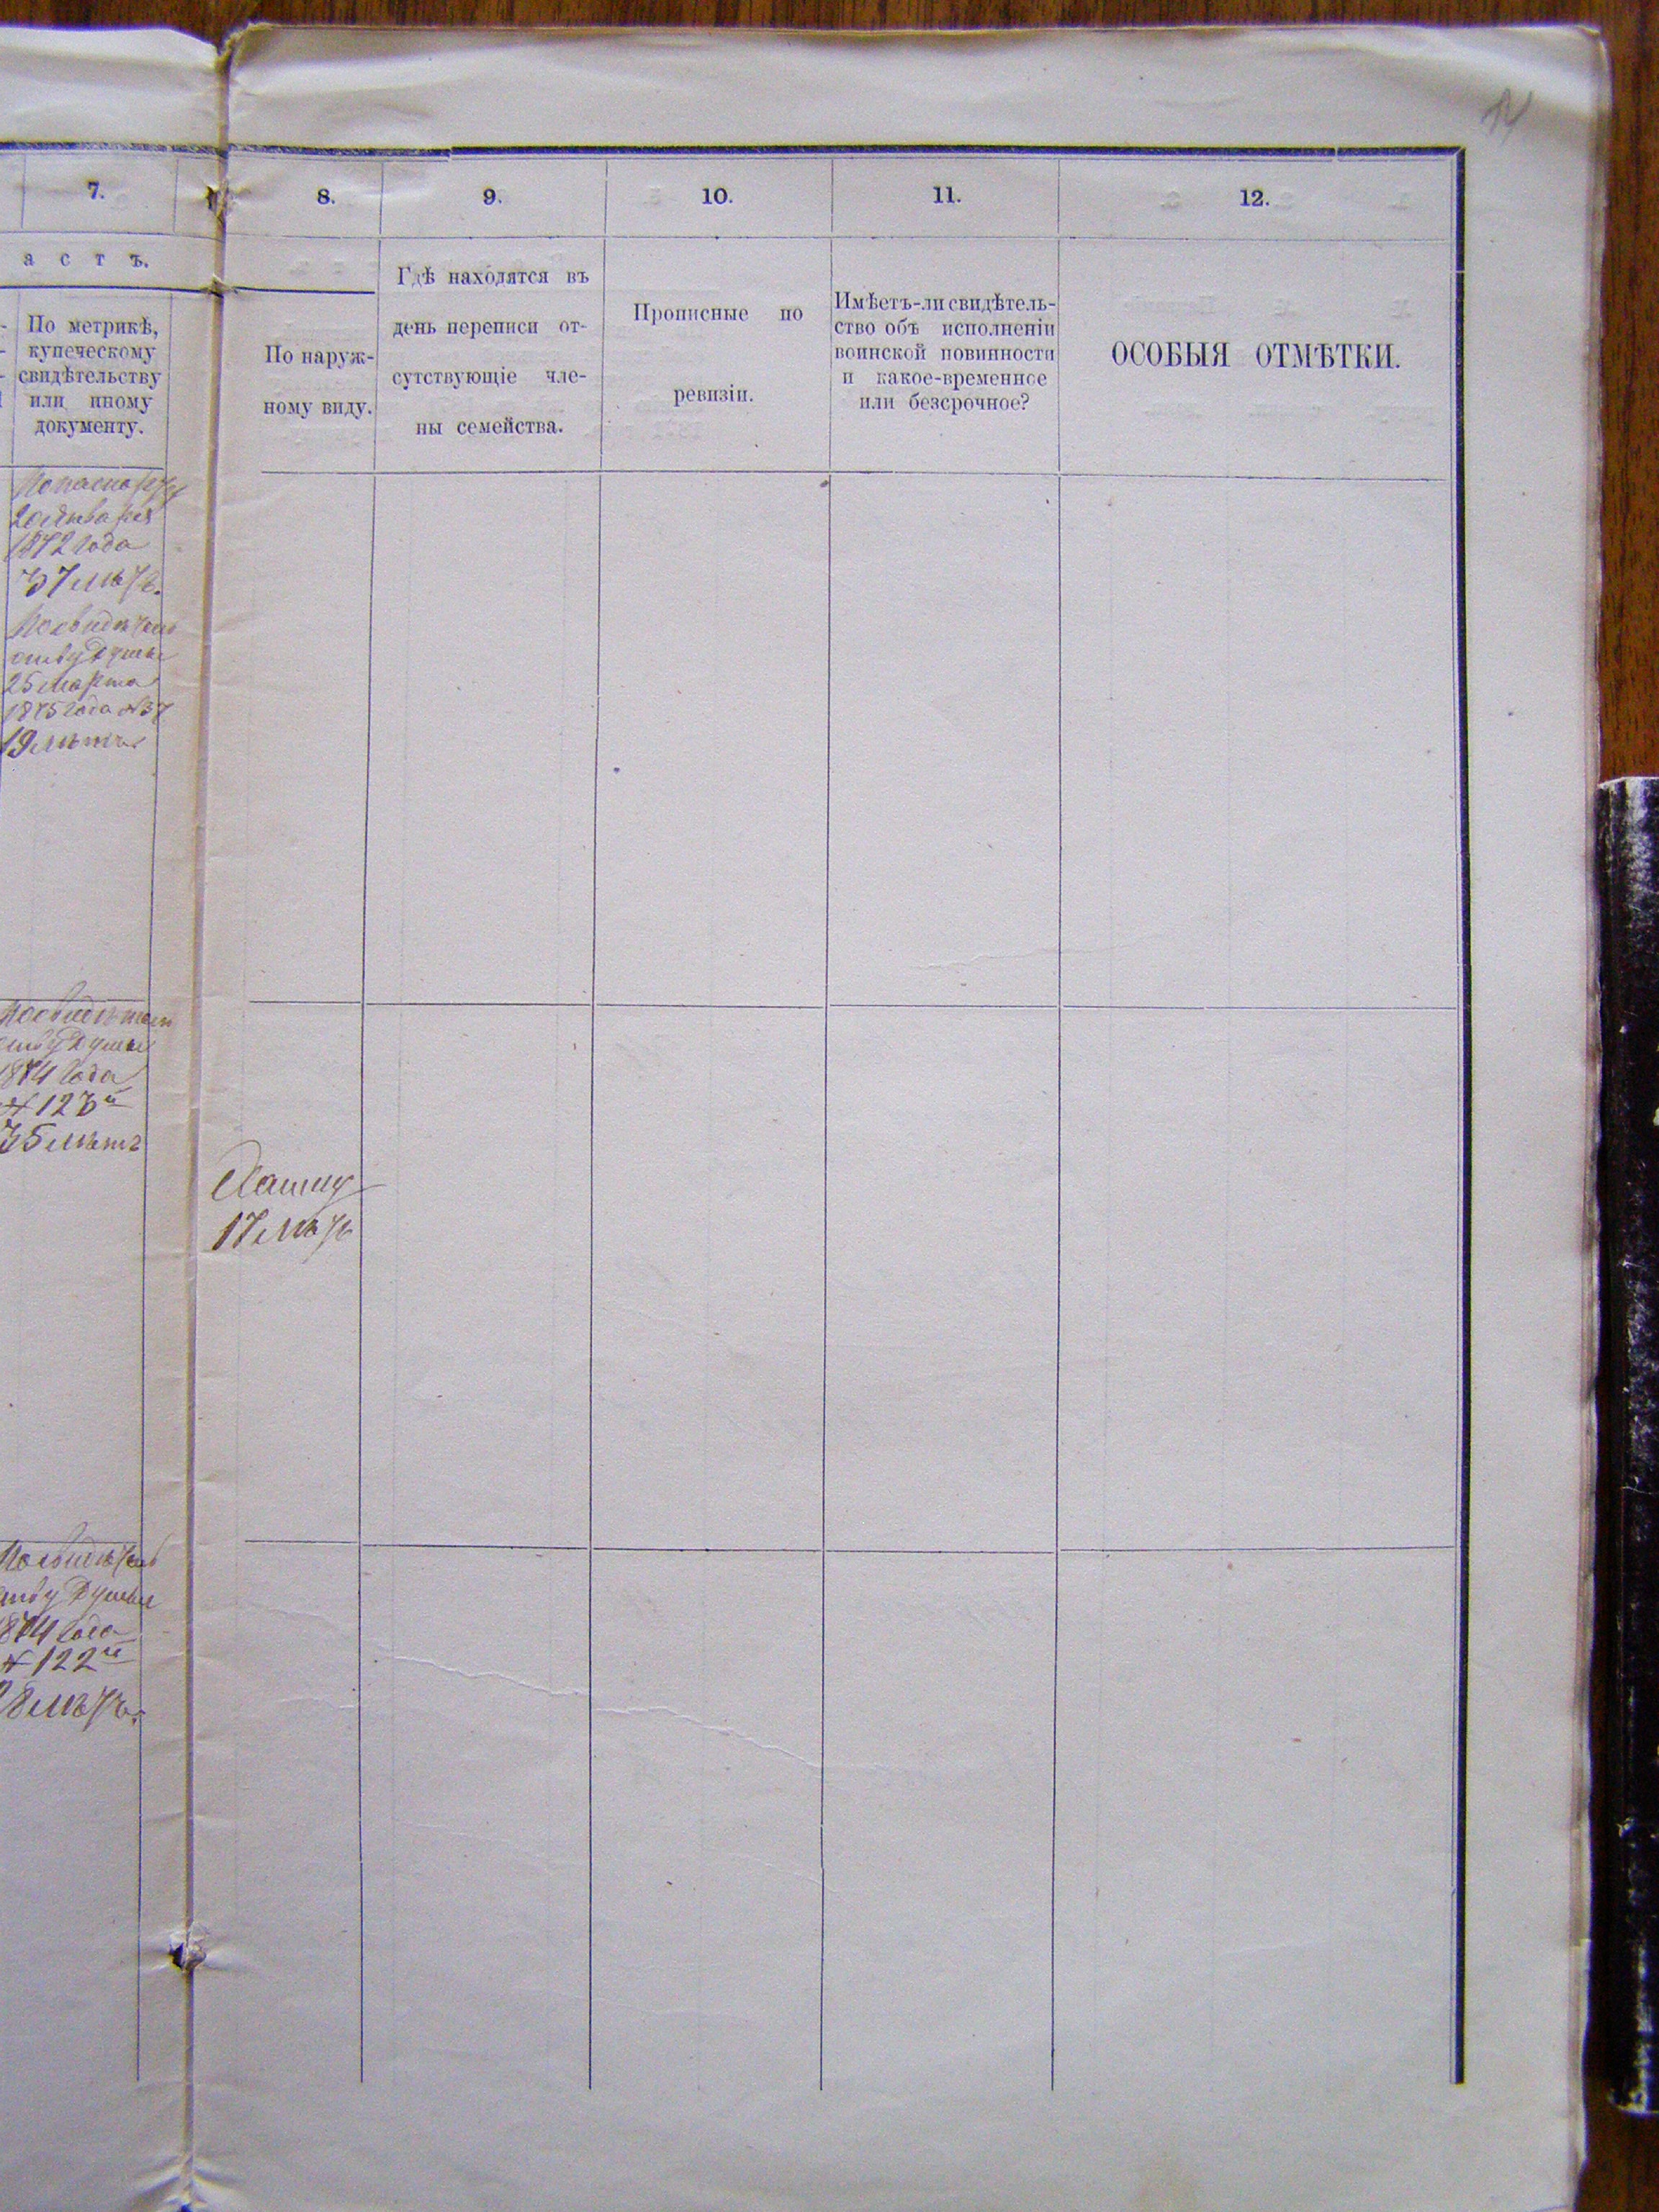 14
7.
8.
9.
10.
11.
12.
а с т ъ.
По метрикѣ,
купеческому
свидѣтельству
или иному
документу.
По наруж-
ному виду.
Гдѣ находятся въ
день переписи от-
сутствующіе чле-
ны семейства.
Прописные по
ревизіи.
Имѣетъ-ли свидѣтель-
ство объ исполненіи
воинской повинности
и какое-временное
или безсрочное?
ОСОБЫЯ ОТМѢТКИ.
По паспорту
20 Января
1872 года
37 лѣтъ.
По свидѣтель
ству Думы
25 Марта
1875 года № 37
19 лѣтъ
По свидѣтель
ству Думы
1874 года
№ 123й
35 лѣтъ
17 лѣтъ
По свидѣтель
ству Думы
1874 года
№ 122й
28 лѣтъ.